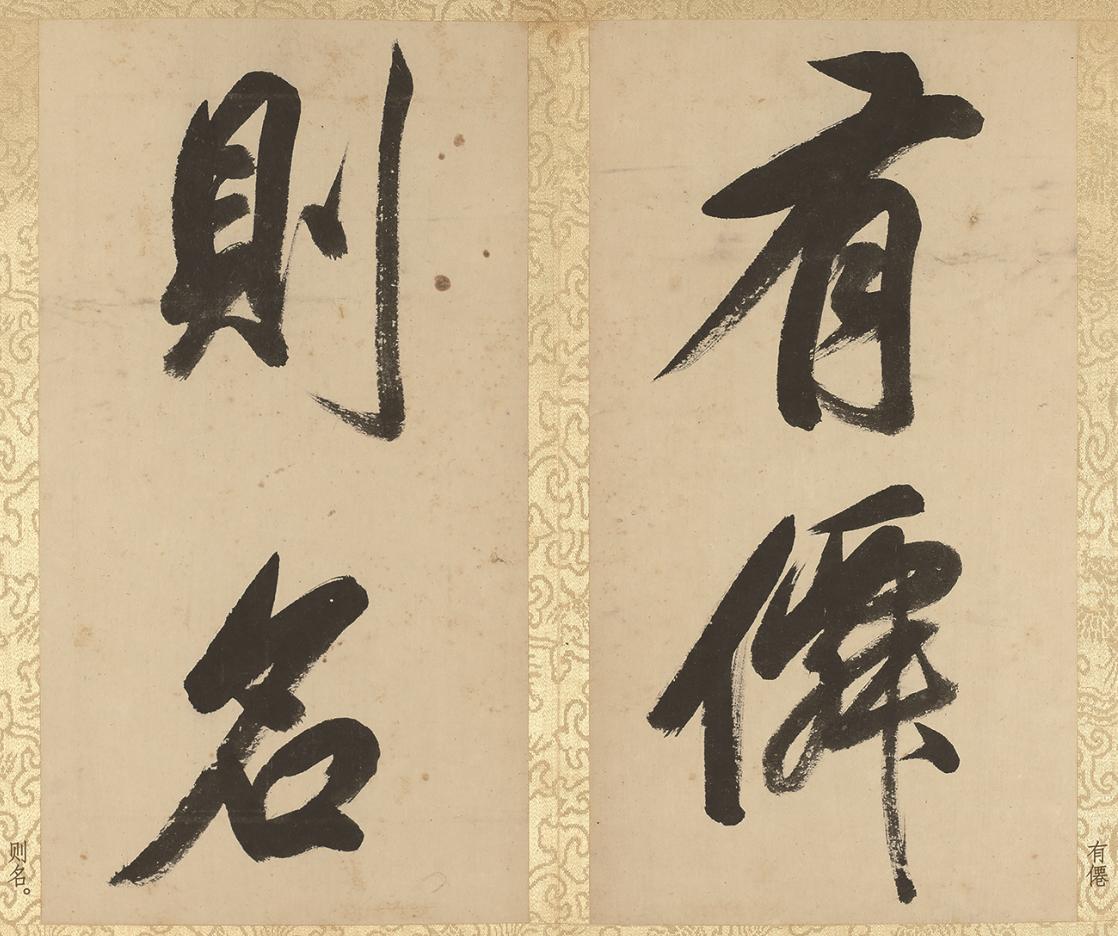 有僊
則名
有僊
则名。